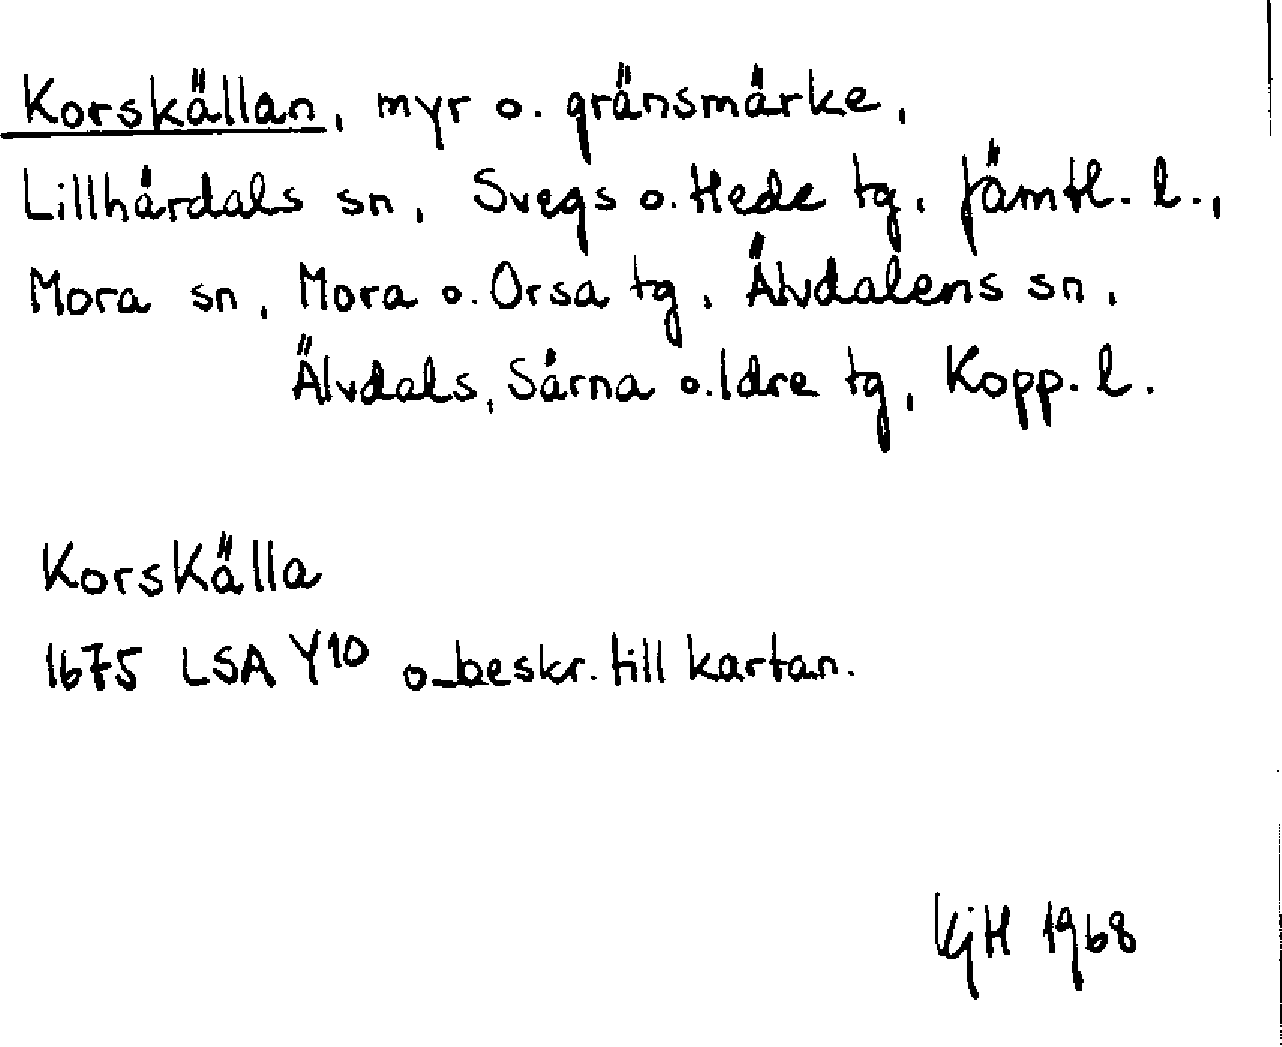 Korskällan, myr o. gränsmärke,
Lillhärdals sn, Svegs o. Hede tg, Jämtl. l.,
Mora sn, Mora o. Orsa tg, Älvdalens sn,
Älvdals, Särna o. Idre tg, Kopp. l.
Korskälla
1675 LSA Y10 o beskr. till kartan.
KjH 1968